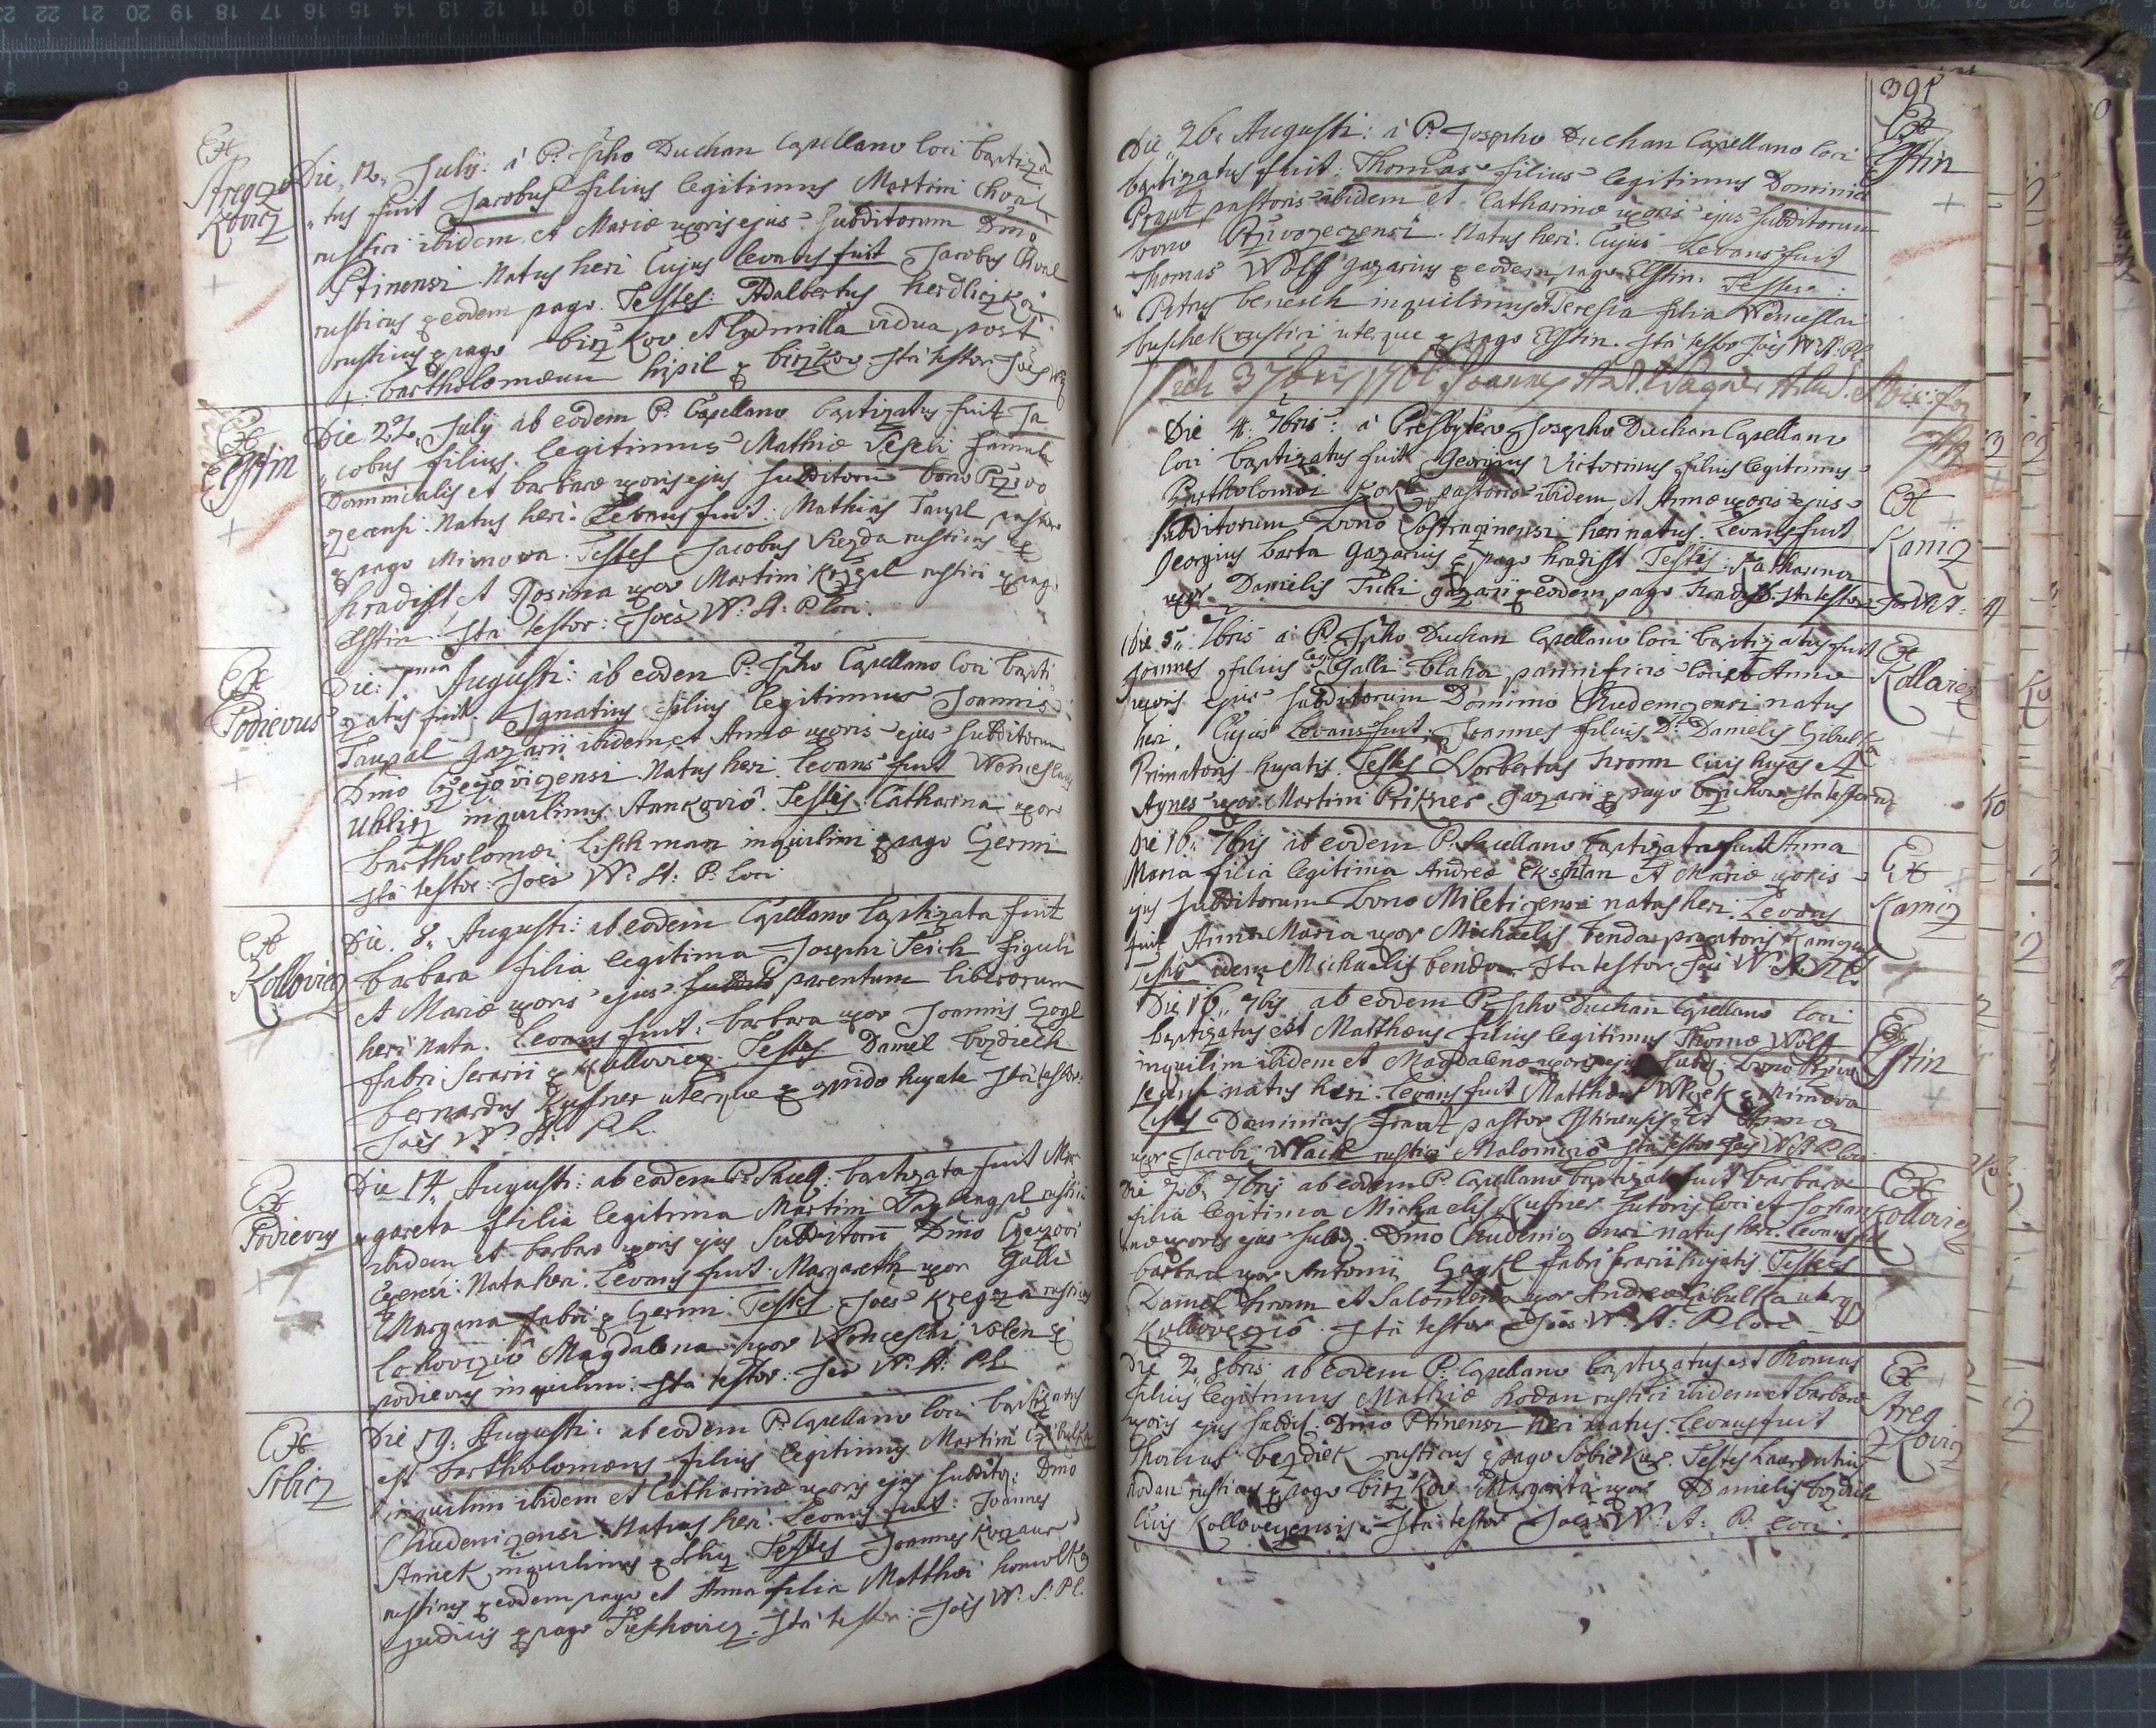 Ex
Stregczo
kovicz
Die 12. July: à P. Jpho Duchan Capellano loci baptiza
tus fuit Jacobus filius legitimus Martini Chval
rustici ibidem et Mariæ uxoris ejus subditorum Dmo
Ptinensi. Natus heri. Cujus levans fuit Jacobus Chval
rusticus ex eodem pago. Testes: Adalbertus herdliczka
rusticus ex pago birzkov et Ludmilla vidua post
+ bartholomæum hipil ex birzkov. Ita testor Joes W
Ex
Elstin
Die 22. July ab eodem P. Capellano baptizatus fuit Ja
cobus filius legitimus Mathiæ Veseli famuli
Dominicalis et barbaræ uxoris ejus subditorum bono Przivo
zecensi. Natus heri. Levans fuit: Mathias Taupl pastor
ex pago Mimova. Testes Jacobus Viezda rusticus ex
hradist et Rosina uxor Martini Kryspl rustici ex pago
Elstin. Ita testor: Joes W. A: P. loci.
Ex
Podievus
Die: 1ma Augusti: ab eodem P. Jpho Capellano loci bapti
zatus fuit: Ignatius filius legitimus Joannis
Taupal gazarii ibidem et Annæ uxoris ejus subditorum
Dmo Czeyovizensi. Natus heri. Levans fuit Wenceslaus
Uhlirz inquilinus Annkovio. Testes: Catharina uxor
bartholomæi Lischman inquilini ex pago Czermi
Ita testor: Joes W. A: P. loci
Ex
Kollovicz
Die. 8. Augusti: ab eodem Capellano baptizata fuit
barbara filia legitima Josephi Teich figuli
et Mariæ uxoris ejus parentum liberorum
heri nata. Levans fuit: barbara uxor Joannis Gogl
fabri serarii ex Kollovicz. Testes Daniel bozdiech
bernardus Kufner uterque ex opido hujate Ita testor:
Joes W. A: P.l.
Ex
Podievus
Die 14. Augusti: ab eodem P. Sacell: baptizata fuit Mar
gareta filia legitima Martini rustici
ibidem et barbaræ uxoris ejus subditorum Dmo Czeyovi
czensi: Nata heri. Levans fuit: Margareth uxor Galli
Morgana fabri ex Czermi. Testes: Joes Kregcza rusticus
Loskovizio Magdalena uxor Wenceslai Volen ex
podievus inquilini: Ita testor: Joes W. A: P.l.
Ex
Srbicz
Die 19. Augusti: ab eodem P. Capellano loci baptizatus
est bartholomæus filius legitimus Martini Czibulka
inquilini ibidem et Catharinæ uxoris ejus subditor: Dmo
Chudenizensi: Natus heri. Levans fuit: Joannes
Annek inquilinus ex Srbicz. Testes Joannes Kozaur
rusticus ex eodem pago et Anna filia Matthæi homolka
judicis ex pago Pieschovicz. Ita testor: Joes W. A: P.l.
391
Ex
Elstin
Die 26. Augusti: à P. Josepho Duchan Capellano loci
baptizatus fuit: Thomas filius legitimus Dominici
Praut pastoris ibidem et Catharinæ uxoris ejus subditorum
bono Przivozeczensi. Natus heri. Cujus Levans fuit
Thomas Wolf gazarius ex eodem pago Elstin. Testes:
Petrus benesch inquilinus et Teresia filia Wenceslai
buschek rustici uterque ex pago Elstin. Ita testor Joes W. A: P.l.
3 7bris Joannes Ant. Wagner
Ex
Kanicz
Die 4. 7bris: à Presbytero Josepho Duchan Capellano
loci baptizatus fuit Georgius Victorinus filius legitimus
Bartholomæi pastoris ibidem et Annæ uxoris ejus
subditorum bono Costraczinensi heri natus. Levans fuit
Georgius barta gazarius ex pago hradist Testes: Katharina
uxor Danielis Tichi gazarii ex eodem pago hradist. Ita testor Joes W A P.
Ex
Kollovicz
Die 5. 7bris à P. Jpho Duchan Capellano loci baptizatus fuit
Joannes filius leg. Galli blaha pannificis loci et Annæ
uxoris ejus subditorum Domino Chudenizensi natus
heri. Cujus Levans fuit: Joannes filius D. Danielis Czibulka
Primatoris hujatis. Testes Norbertus Kronn civis hujas et
Agnes uxor Martini Prikner gazarii ex pago Ita testor
Ex
Kanicz
Die 16. 7bris ab eodem P. Sacellano baptizata fuit Anna
Maria filia legitima Andreæ Ekschlan et Mariæ uxoris
ejus subditorum bono Miletizensi natus heri. Levans
fuit Anna Maria uxor Michaelis benda
Testis idem Michaelis benda. Ita testor Joes W. A. P.l.
Ex
Elstin
Die 16. 7bris ab eodem P. Jpho Duchan Capellano loci
baptizatus est Matthæus filius legitimus Thomæ Wolf
inquilini ibidem et Magdalenæ uxoris ejus subd: bono Przivo
zecensi natus heri. Levans fuit Matthæus Wlcek ex Mimova
Testes Dominicus Praut pastor Elstinensis Et Anna
uxor Jacobi Wlach rustici Malonizio Ita testor Joes W A P loci
Ex
Kollovicz
Die 26. 7bris ab eodem P. Capellano baptizata fuit barbara
filia legitima Michaelis Kufner sutoris loci et Johan
næ uxoris ejus subd: Dmo Chudeniczensi natus heri. Levans fuit
barbara uxor Antonii Gogl fabri serarii hujatis. Testes
Daniel Kronn et Salomena uxor Andreæ Czibulka uterq
Kollovecziô. Ita testor Joes W. A: P loci
Ex
Streg
zkovicz
Die 2. 8bris ab eodem P. Capellano baptizatus est Thomas
filius legitimus Mathiæ hodan rustici ibidem et barbaræ
uxoris ejus subdit: Dmo Ptinensi heri natus. Levans fuit
Thomas bezdiek rusticus ex pago Sobiekur. Testes Laurentius
hodan rusticus ex pago birzkov. Margarita uxor Danielis bozdiech
civis Kolloveczensis. Ita testor Joes W. A: P. loci